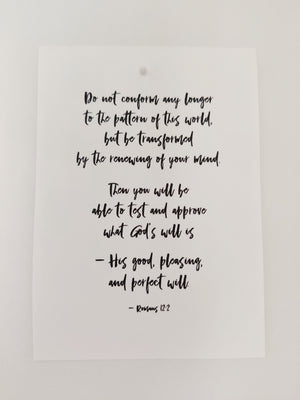 Do not conform any longer
to the pattern of this world,
but be transformed
by the renewing of your mind.
Then you will be
able to test and approve
what God's will is
– His good, pleasing,
and perfect will.
– Romans 12:2